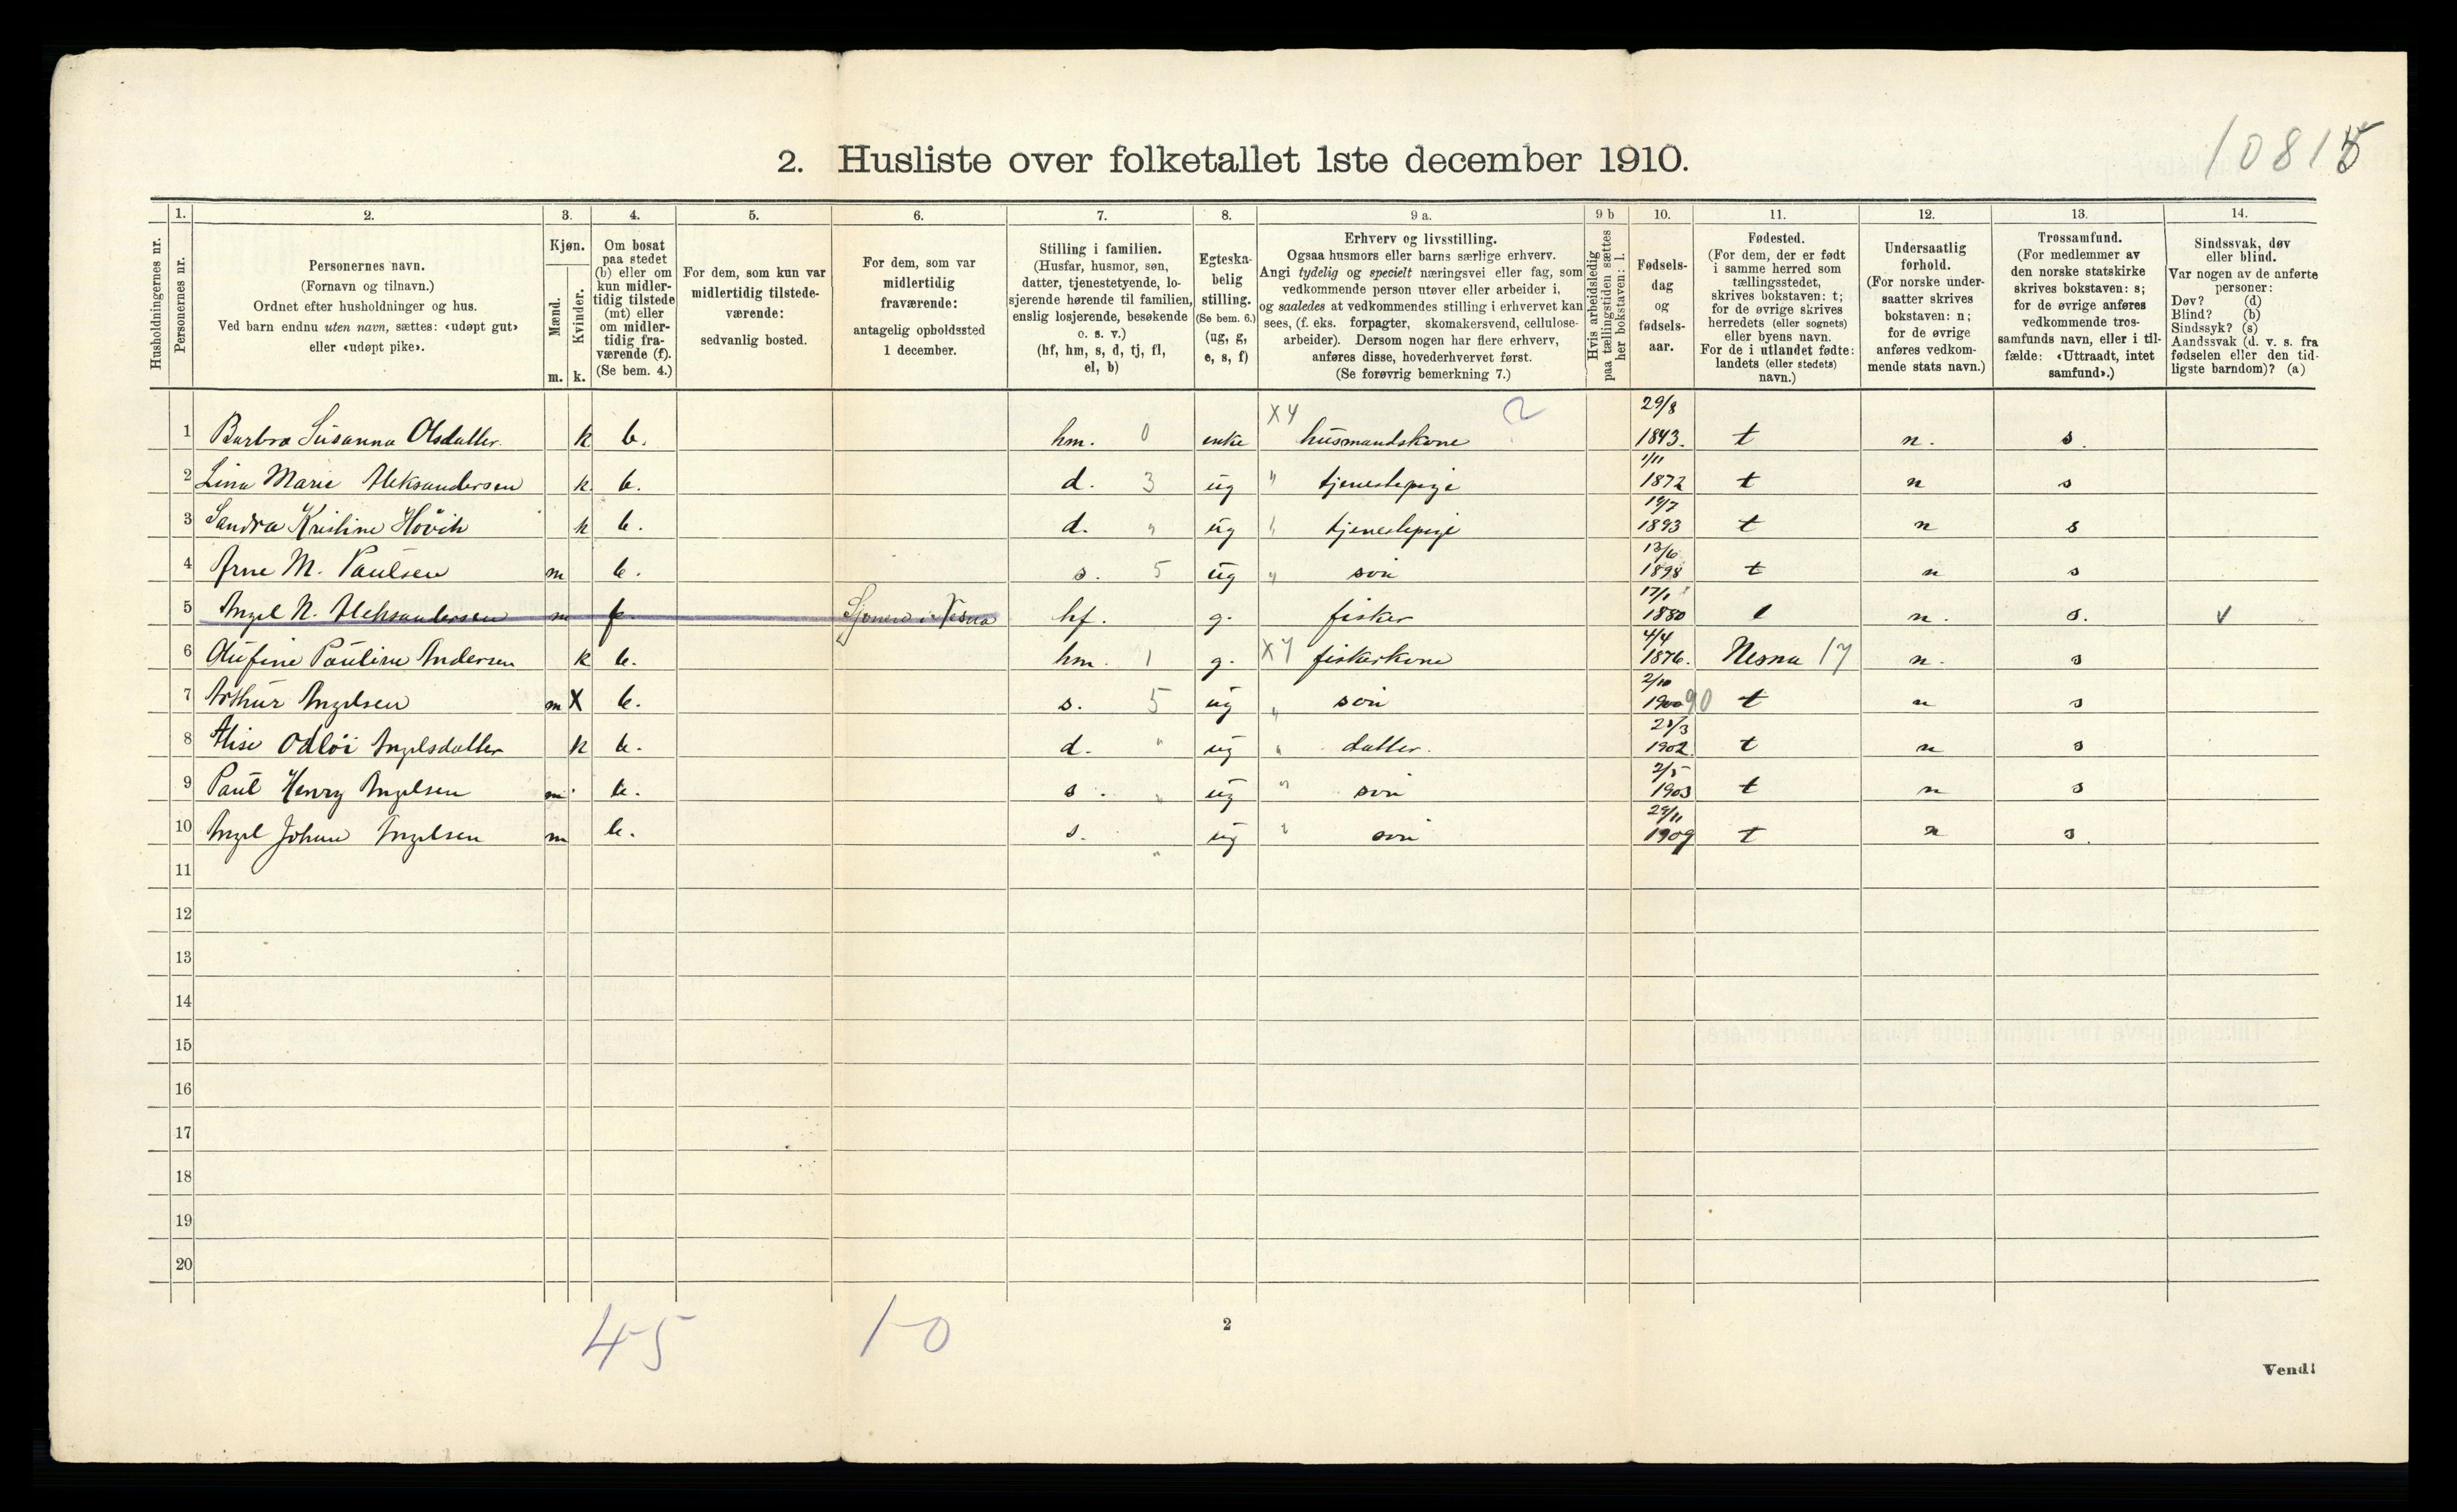 10815
2. Husliste over folketallet 1ste december 1910.
1. 2. 3. 4. 5. 6. 7. 8. 9 a. 9 b 10. 11. 12. 13. 14.
Husholdningernes nr.
Personernes nr.
Personernes navn.
(Fornavn og tilnavn.)
Ordnet efter husholdninger og hus.
Ved barn endnu uten navn, sættes: «udøpt gut»
eller «udøpt pike».
Kjøn.
Mænd.
Kvinder.
m. k.
Om bosat
paa stedet
(b) eller om
kun midler-
tidig tilstede
(mt) eller
om midler-
tidig fra-
værende (f).
(Se bem. 4.)
For dem, som kun var
midlertidig tilstede-
værende:
sedvanlig bosted.
For dem, som var
midlertidig
fraværende:
antagelig opholdssted
1 december.
Stilling i familien.
(Husfar, husmor, søn,
datter, tjenestetyende, lo-
sjerende hørende til familien,
enslig losjerende, besøkende
o. s. v.)
(hf, hm, s, d, tj, fl,
el, b)
Egteska-
belig
stilling.
(Se bem. 6.)
(ug, g,
e, s, f)
Erhverv og livsstilling.
Ogsaa husmors eller barns særlige erhverv.
Angi tydelig og specielt næringsvei eller fag, som
vedkommende person utøver eller arbeider i,
og saaledes at vedkommendes stilling i erhvervet kan
sees, (f. eks. forpagter, skomakersvend, cellulose-
arbeider). Dersom nogen har flere erhverv,
anføres disse, hovederhvervet først.
(Se forøvrig bemerkning 7.)
Hvis arbeidsledig
paa tællingstiden sættes
her bokstaven: l.
Fødsels-
dag
og
fødsels-
aar.
Fødested.
(For dem, der er født
i samme herred som
tællingsstedet,
skrives bokstaven: t;
for de øvrige skrives
herredets (eller sognets)
eller byens navn.
For de i utlandet fødte:
landets (eller stedets)
navn.)
Undersaatlig
forhold.
(For norske under-
saatter skrives
bokstaven: n;
for de øvrige
anføres vedkom-
mende stats navn.)
Trossamfund.
(For medlemmer av
den norske statskirke
skrives bokstaven: s;
for de øvrige anføres
vedkommende tros-
samfunds navn, eller i til-
fælde: «Uttraadt, intet
samfund».)
Sindssvak, døv
eller blind.
Var nogen av de anførte
personer:
Døv? (d)
Blind? (b)
Sindssyk? (s)
Aandssvak (d. v. s. fra
fødselen eller den tid-
ligste barndom)? (a)
1 Barbra Susanna Olsdatter. k b. hm. 0 enke X4 husmandskone ? 29/8 1843. t n. s.
2 Lina Marie Aleksandersen k. b. d. 3 ug " tjenestepige 1/11 1872 t n s
3 Sandra Kristine Hövik k b. d. " ug " tjenestepige 19/7 1893 t n s
4 Arne M. Paulsen m b. s. 5 ug " sön 13/6 1898 t n s
5 Angel N. Aleksandersen m f. Sjonen i Nesna hf. g. fisker 17/1 1880 t n. s. v
6 Olufine Pauline Andersen k b. hm. 1 g. X4 fiskerkone 4/4 1876. Nesna 17 n. s
7 Arthur Angelsen m X b. s. 5 ug " sön 2/10 1900 90 t n s
8 Alise Odlöi Angelsdatter k b. d. " ug " datter. 21/3 1902. t n s
9 Paul Henry Angelsen m b. s. " ug " sön 2/5 1903 t n s
10 Angel Johan Angelsen m b. s. " ug " sön 29/11 1909 t n s.
11
12
13
14
15
16
17
18
19
20
45 10
2
Vend!